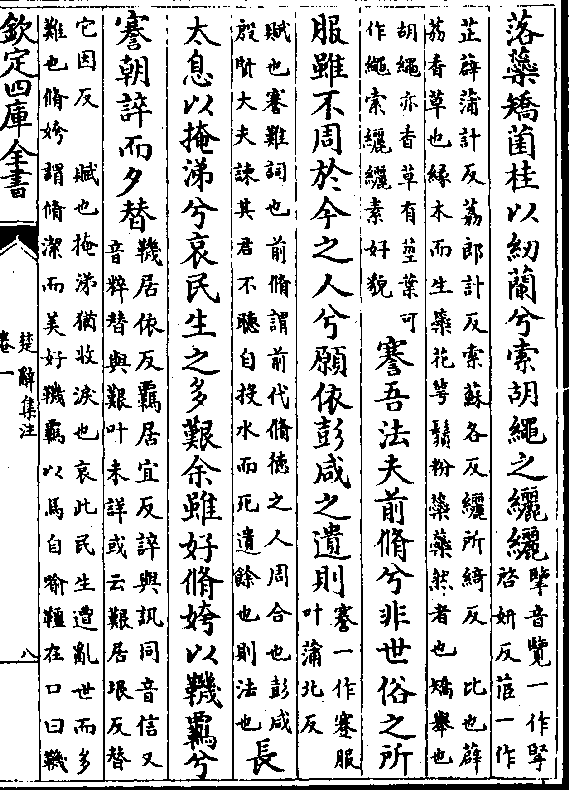 落蘂矯菌桂以紉蘭兮索胡繩之纚纚擥音覽一作掔
啓妍反茝一作
芷薜蒲計反荔郎計反索蘇各反纚所綺反　比也薜
荔香草也縁木而生蘂花蕚鬚粉蘂蘂然者也矯舉也
胡繩亦香草有莖葉可
作繩索纚纚索好貌
謇吾法夫前脩兮非世俗之所
服雖不周於今之人兮願依彭咸之遺則謇一作蹇服
叶蒲北反
賦也謇難詞也前脩謂前代脩德之人周合也彭咸
殷賢大夫諫其君不聽自投水而死遺餘也則法也
長
太息以掩涕兮哀民生之多艱余雖好脩姱以鞿羈兮
謇朝誶而夕替鞿居依反羈居宜反誶與訊同音信又
音粹替與艱叶未詳或云艱居垠反替
它因反　賦也掩涕猶收淚也哀此民生遭亂世而多
難也脩姱謂脩潔而美好鞿羈以馬自喻韁在口曰鞿
欽定四庫全書
楚辭集注
卷一
八